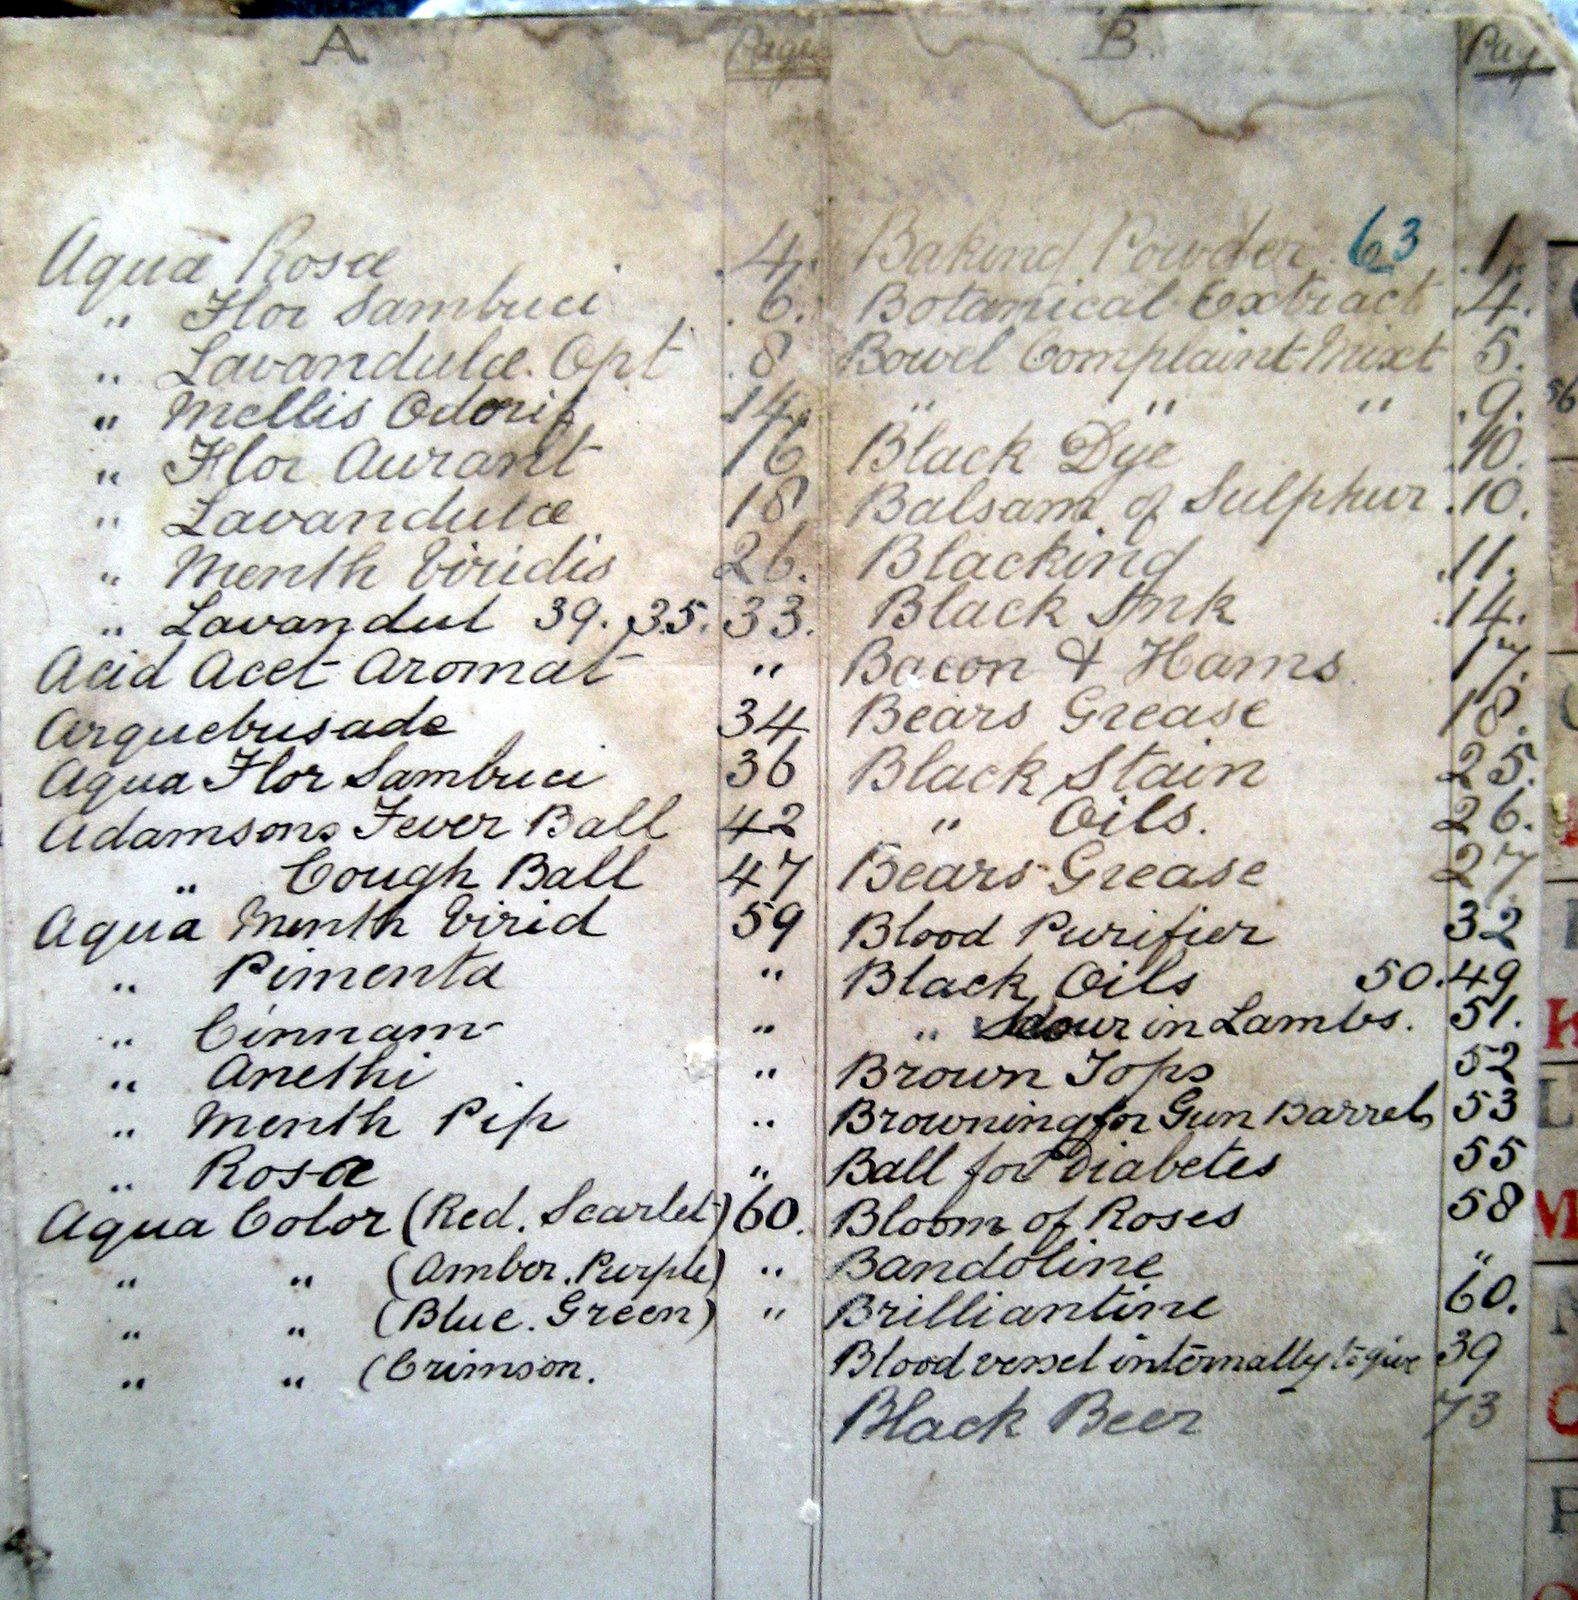 A
Page
Aqua Rosæ 4.
" Flor Sambuci 6.
" Lavandulæ Opt 8
" Mellis Odorif 14.
" Flor Aurant 16
" Lavandulæ 18
" Menth Viridis 26.
" Lavandul 39. 35. 33.
Acid Acet Aromat "
Arquebusade 34
Aqua Flor Sambuci 36
Adamsons Fever Ball 42
" Cough Ball 47
Aqua Menth Virid 59
" Pimenta "
" Cinnam "
" Anethi "
" Menth Pip "
" Rosæ "
Aqua Color (Red. Scarlet) 60.
" " (Amber. Purple) "
" " (Blue. Green) "
" " (Crimson.
B.
Pag
Baking Powder 63 1.
Botanical Extract 4.
Bowel Complaint Mixt 5.
" " " 9.
Black Dye 10.
Balsam of Sulphur 10.
Blacking 11.
Black Ink 14.
Bacon & Hams 17.
Bears Grease 18.
Black Stain 25.
" Oils. 26.
Bears Grease 27
Blood Purifier 32
Black Oils 50. 49
" in Lambs. 51.
Brown Tops 52
Browning for Gun Barrels 53
Ball for Diabetes 55
Bloom of Roses 58
Bandoline "
Brilliantine 60.
Blood vessel internally to give 39
Black Beer 73
56
K
L
M
N
O
P